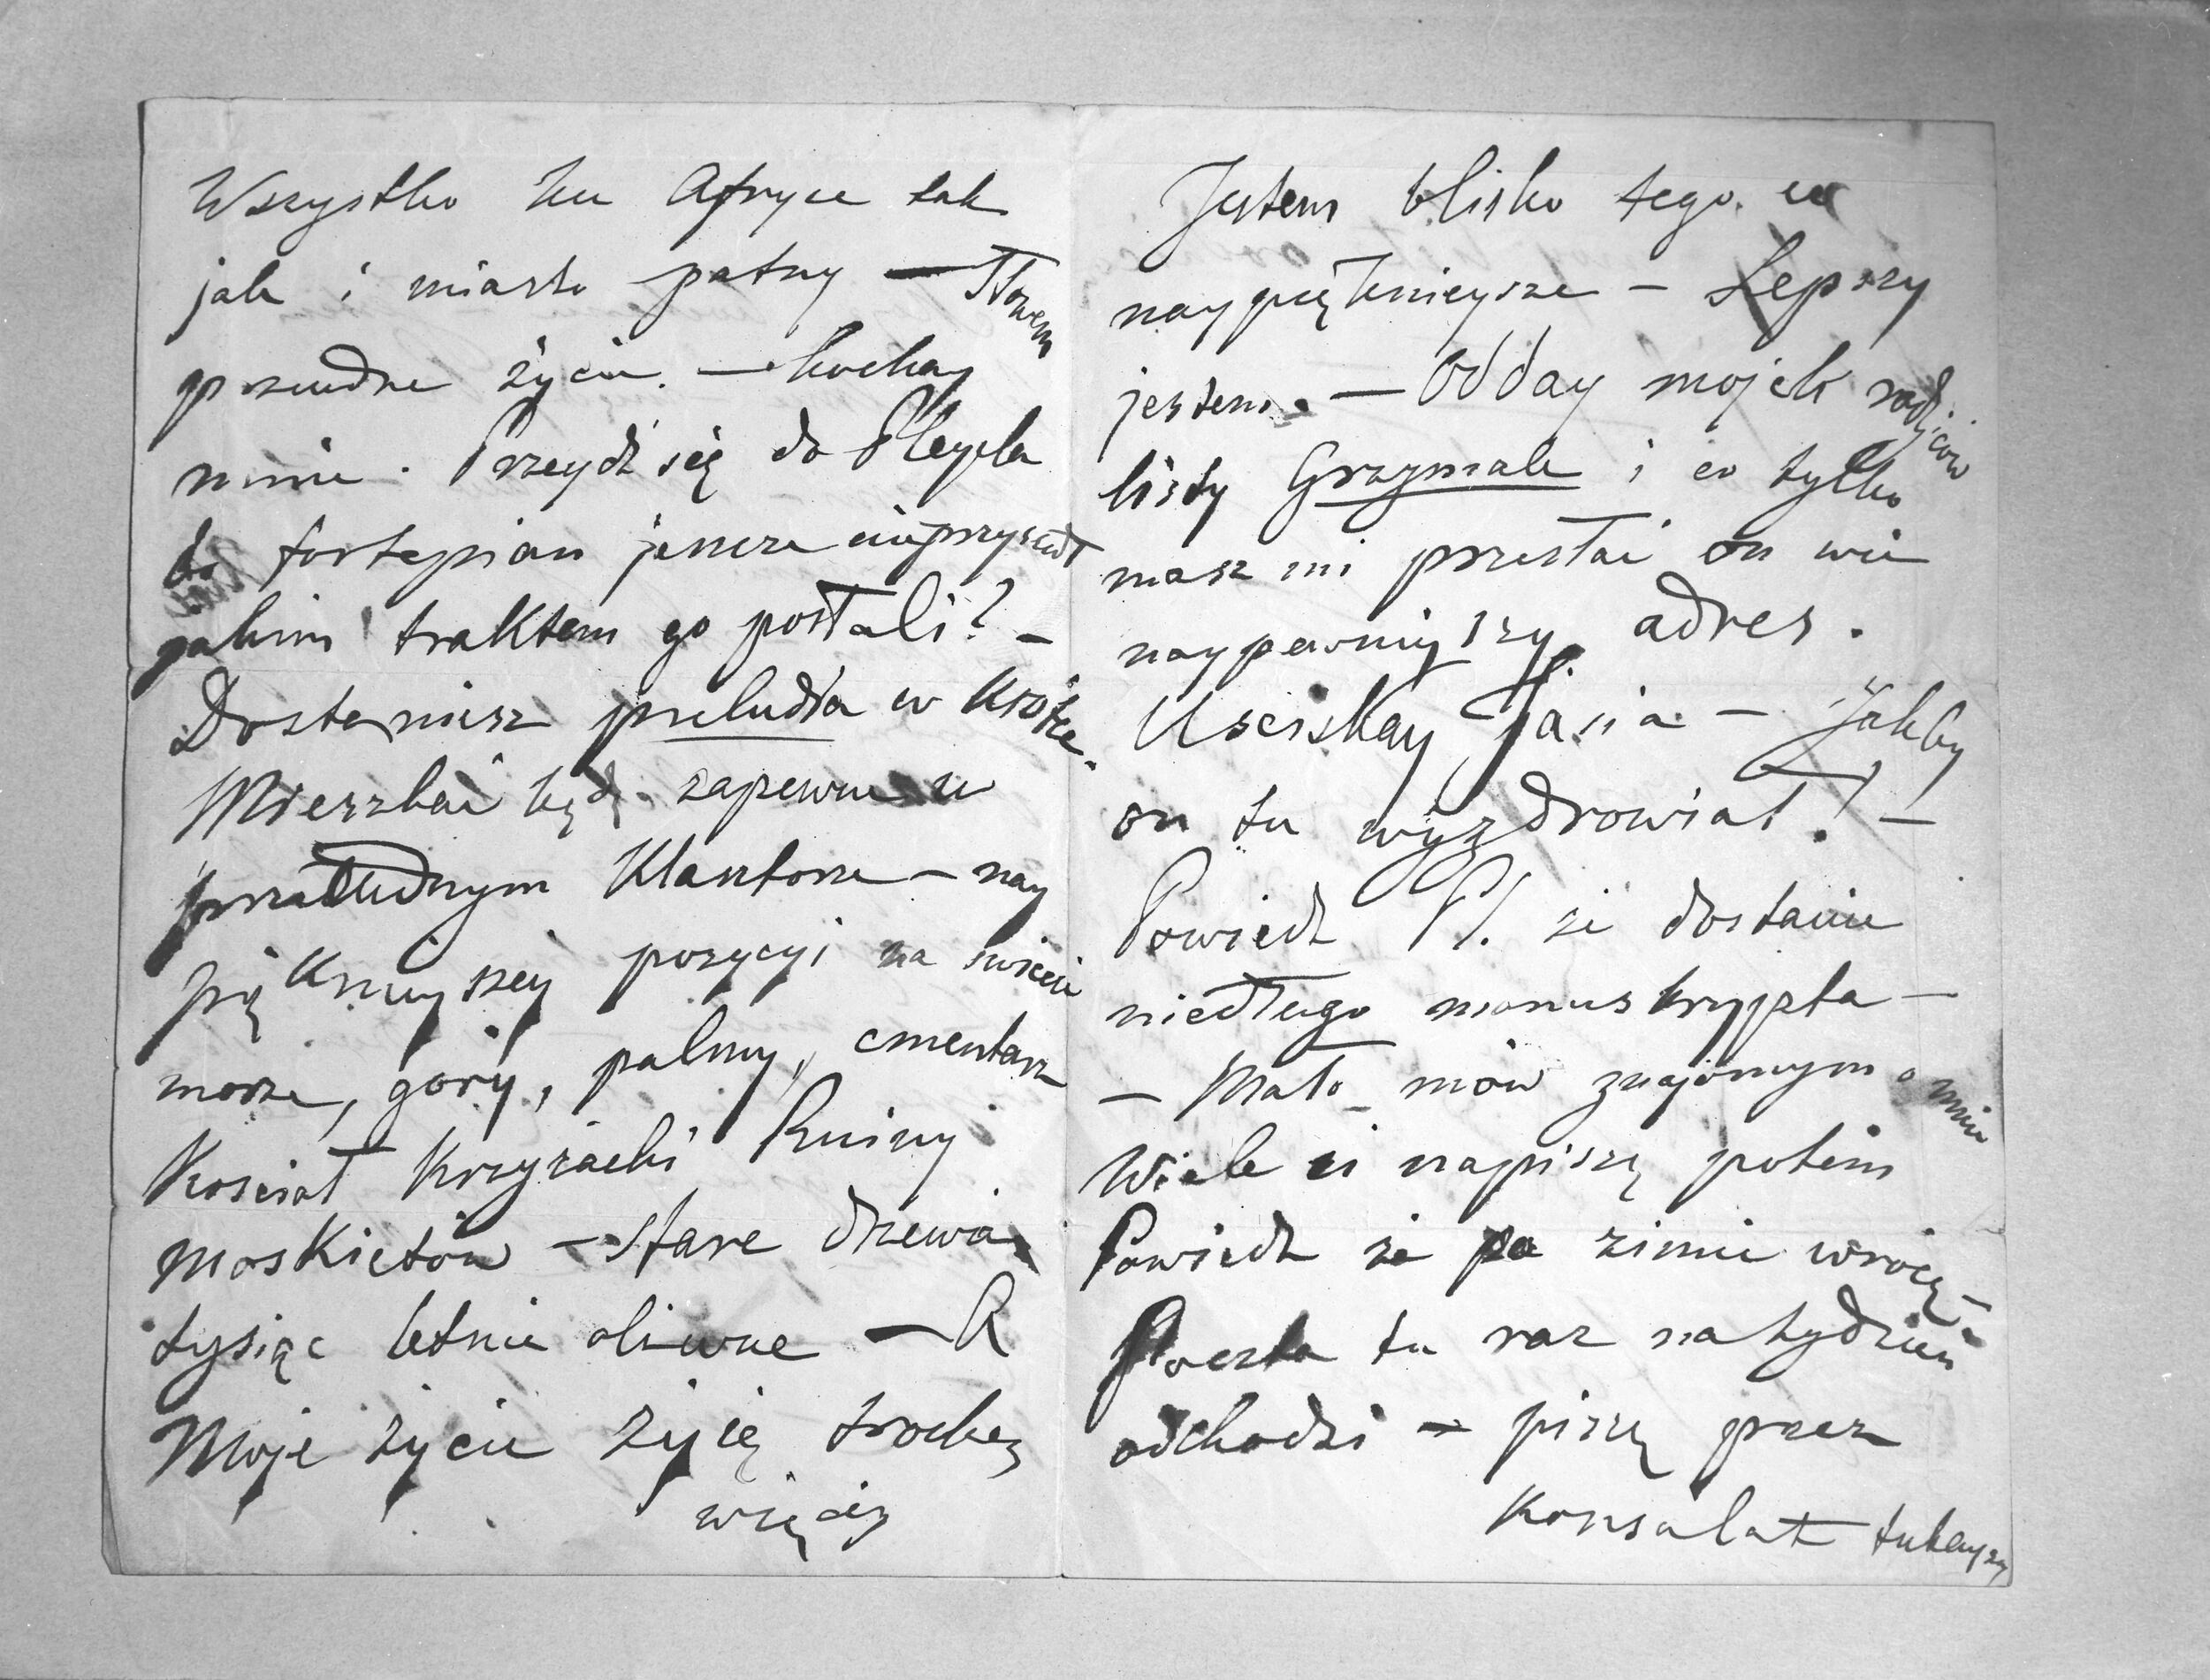 Wszystko ku Afryce tak
jak i miasto patrzy — Słowem
przecudne życie. — Kochay
mnie. Przeydź się do Pleyela
bo fortepian jeszcze nieprzyszedł
jakim traktem go posłali? —
Dostaniesz preludia w krótce.
Mieszkać będę zapewne w
przecudnym klasztorze — nay
piękniejszey pozycyi na świecie
morze, góry, palmy, cmentarz
Kościoł Krzyżacki Ruiny
moskietów — stare drzewa
tysiąc letnie oliwne — A
Moje życie żyję trochę
więcéy
Jestem blisko tego co
naypiękniejsze — Lepszy
jestem. — Odday mojch rodziców
listy Grzymale i co tylko
masz mi przesłać on wie
naypewniejszy adres.
Usciskay Jasia — Jakby
on tu wyzdrowiał! —
Powiedz Pl. że dostanie
niedługo manuskrypta —
— Mało mów znajomym o mnie
Wiele ci napiszę potém
Powiedz że po zimie wrócę —
Poczta tu raz na tydzień
odchodzi — piszę przez
Konsulat tutejszy